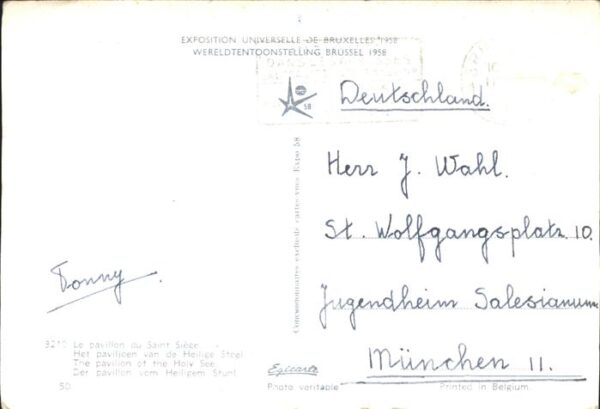 EXPOSITION UNIVERSELLE DE BRUXELLES 1958
WERELDTENTOONSTELLING BRUSSEL 1958
58
Deutschland.
Herr J. Wahl.
St. Wolfgangsplatz 10.
Jugendheim Salesianum
München 11.
Tonny.
Concessionnaires exclusifs cartes-vues Expo 58
3210 Le pavillon du Saint Siège.
Het paviljoen van de Heilige Stoel
The pavilion of the Holy See
Der pavillon vom Heiligem Stuhl
50.
Egicarte
Photo veritable
Printed in Belgium.